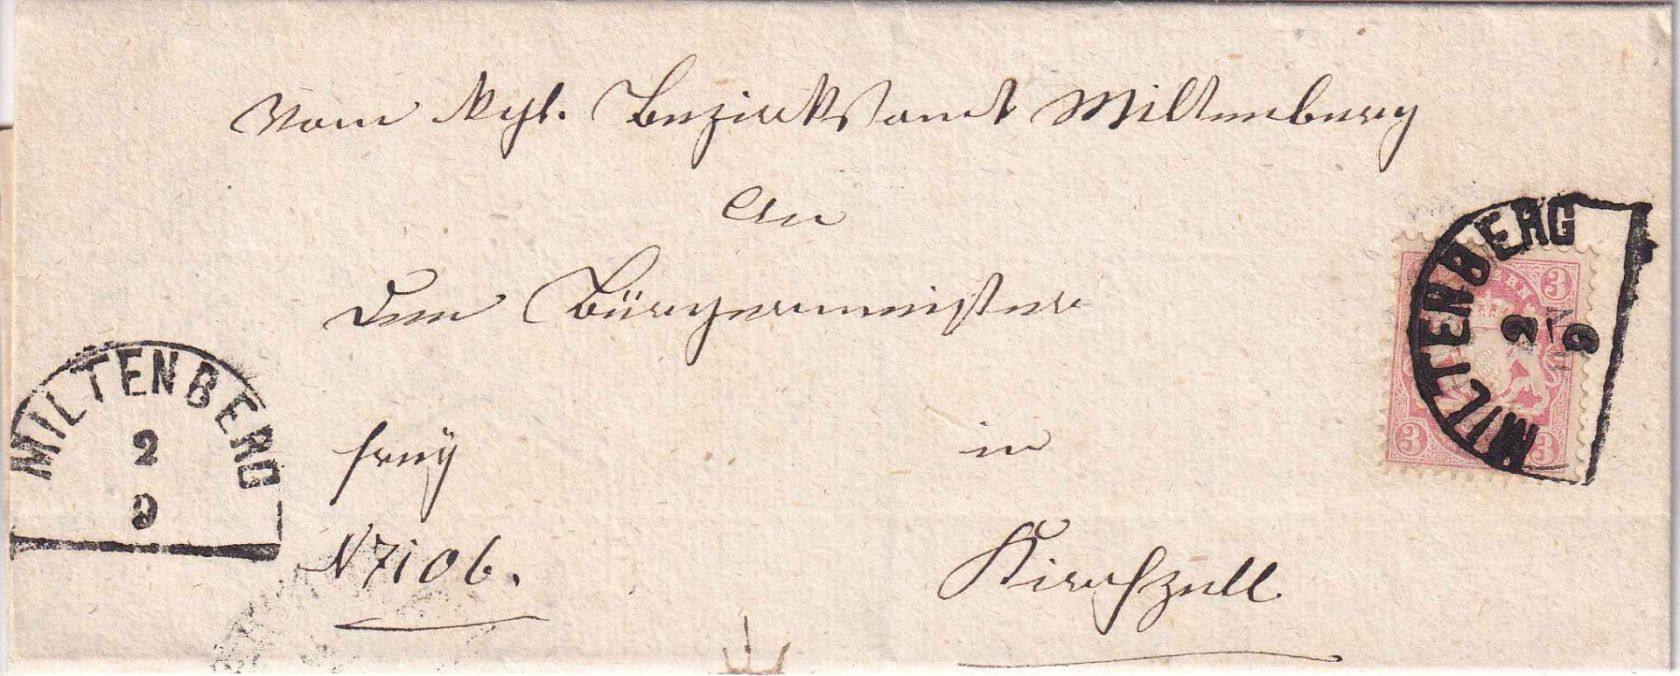 Vom kgl. Bezirksamt Miltenberg
An
den Bürgermeister
frey
in
N 7106.
Kirchzell
MILTENBERG
2
9
MILTENBERG
2
9
3
3
3